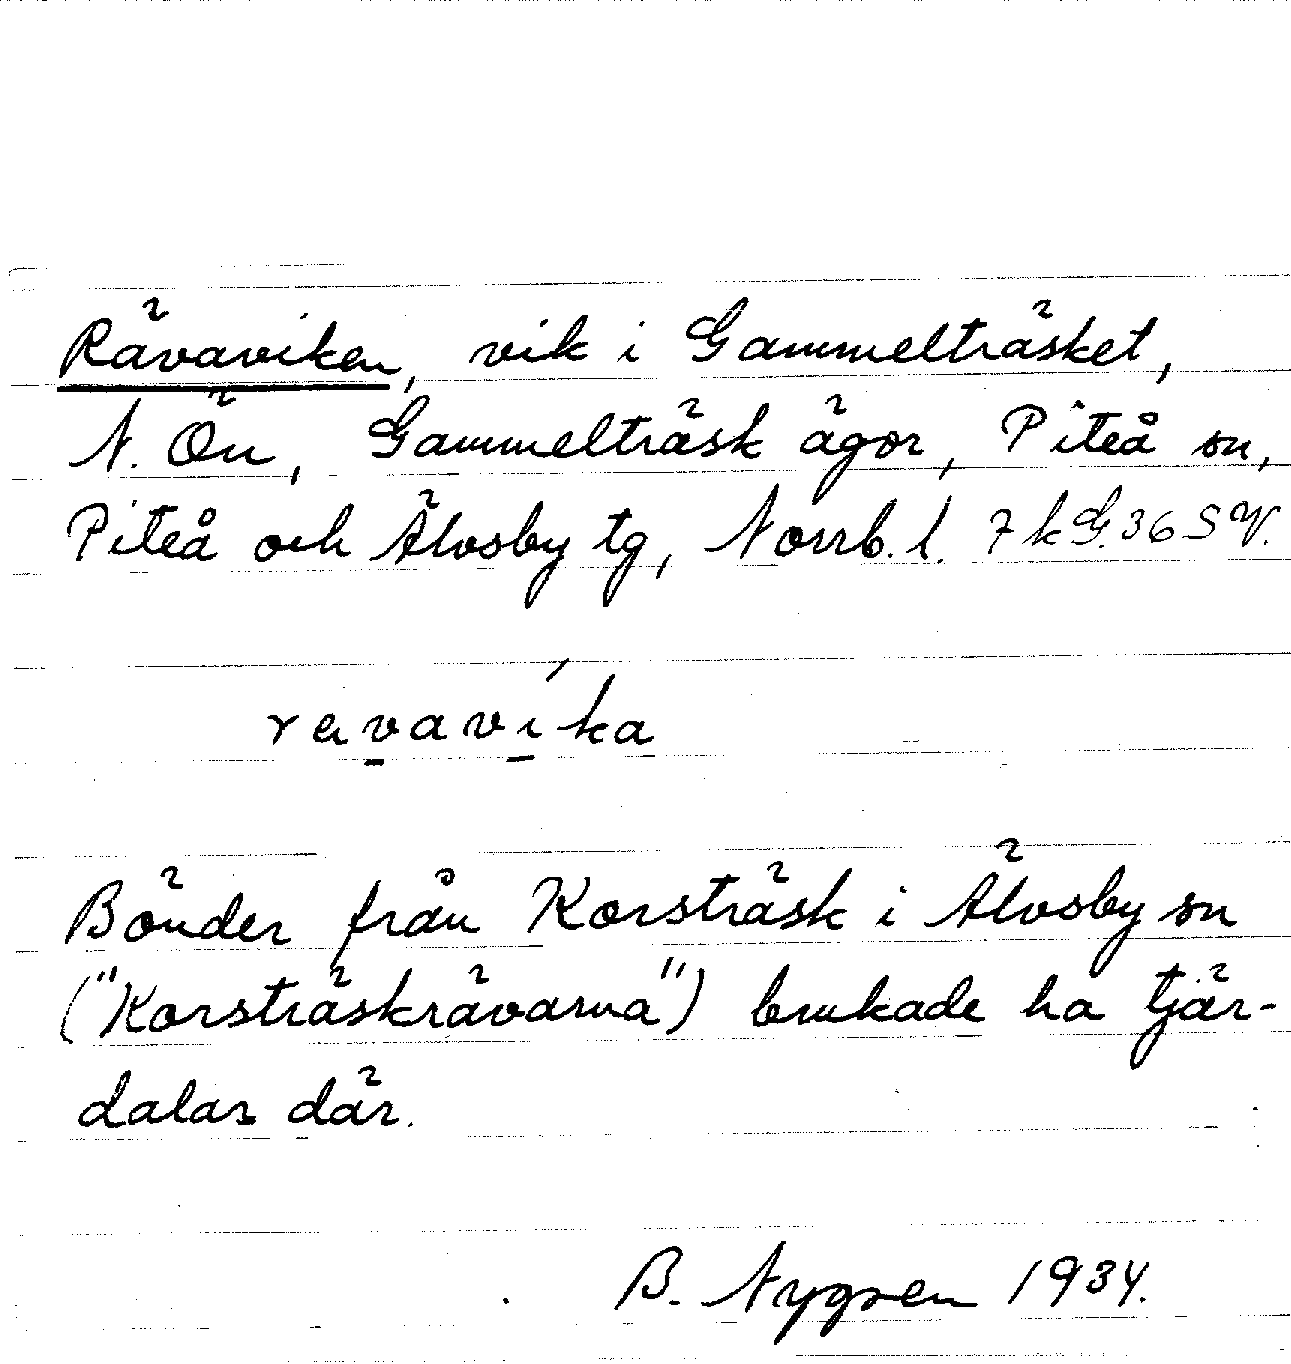 Rävaviken, vik i Gammelträsket,
N. Ön, Gammelträsk ägor, Piteå sn,
Piteå och Älvsby tg, Norrb. l. 7 k G. 36 S V.
ravavíka
Bönder från Korsträsk i Älvsby sn
("Korsträskrävarna") brukade ha tjär-
dalar där.
B. Nygren 1934.